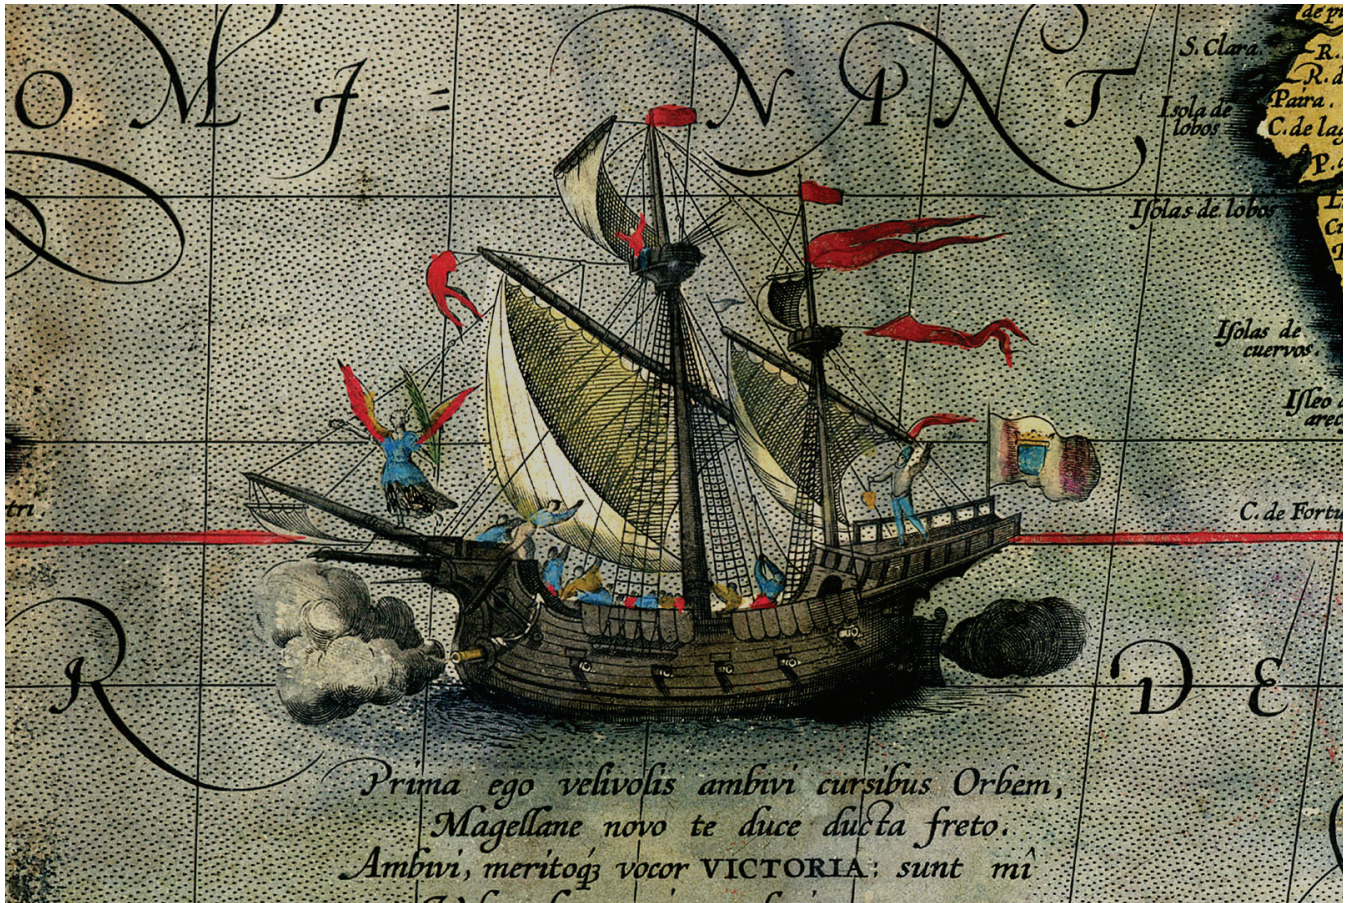 OMI=
NANT
S. Clara
Isola de
lobos
Paira.
C. de lag
Isolas de lobos
Isolas de
cuervos.
Isleo
arec
C. de Fortu
tri.
R
DE
Prima ego velivolis ambivi cursibus Orbem,
Magellane novo te duce ducta freto.
Ambivi, meritoq́ꝫ vocor VICTORIA: sunt mî